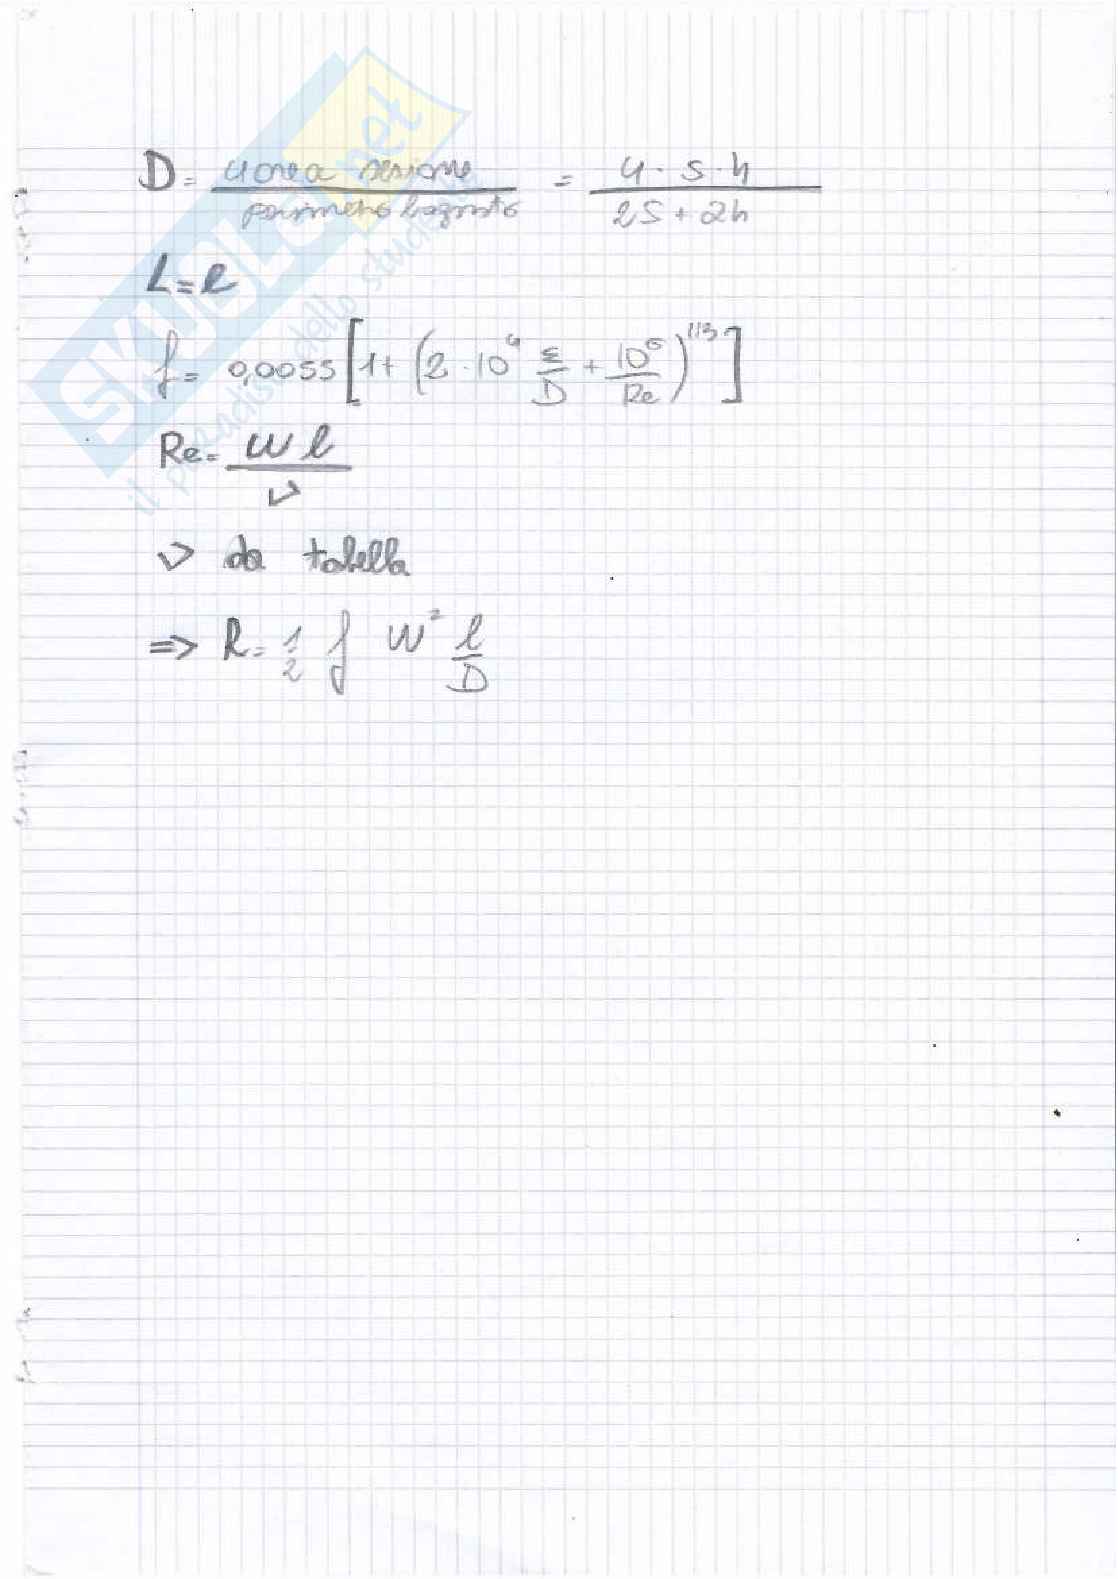 D = 4 area sezione / perimetro bagnato = 4 · s · h / 2s + 2h
L = l
f = 0,0055 [1 + (2 · 10⁴ ε/D + 10⁶/Re)^1/3]
Re = w l / ν
ν da tabella
=> R = 1/2 f w² l/D
SKUOLA.net
il paradiso dello studente